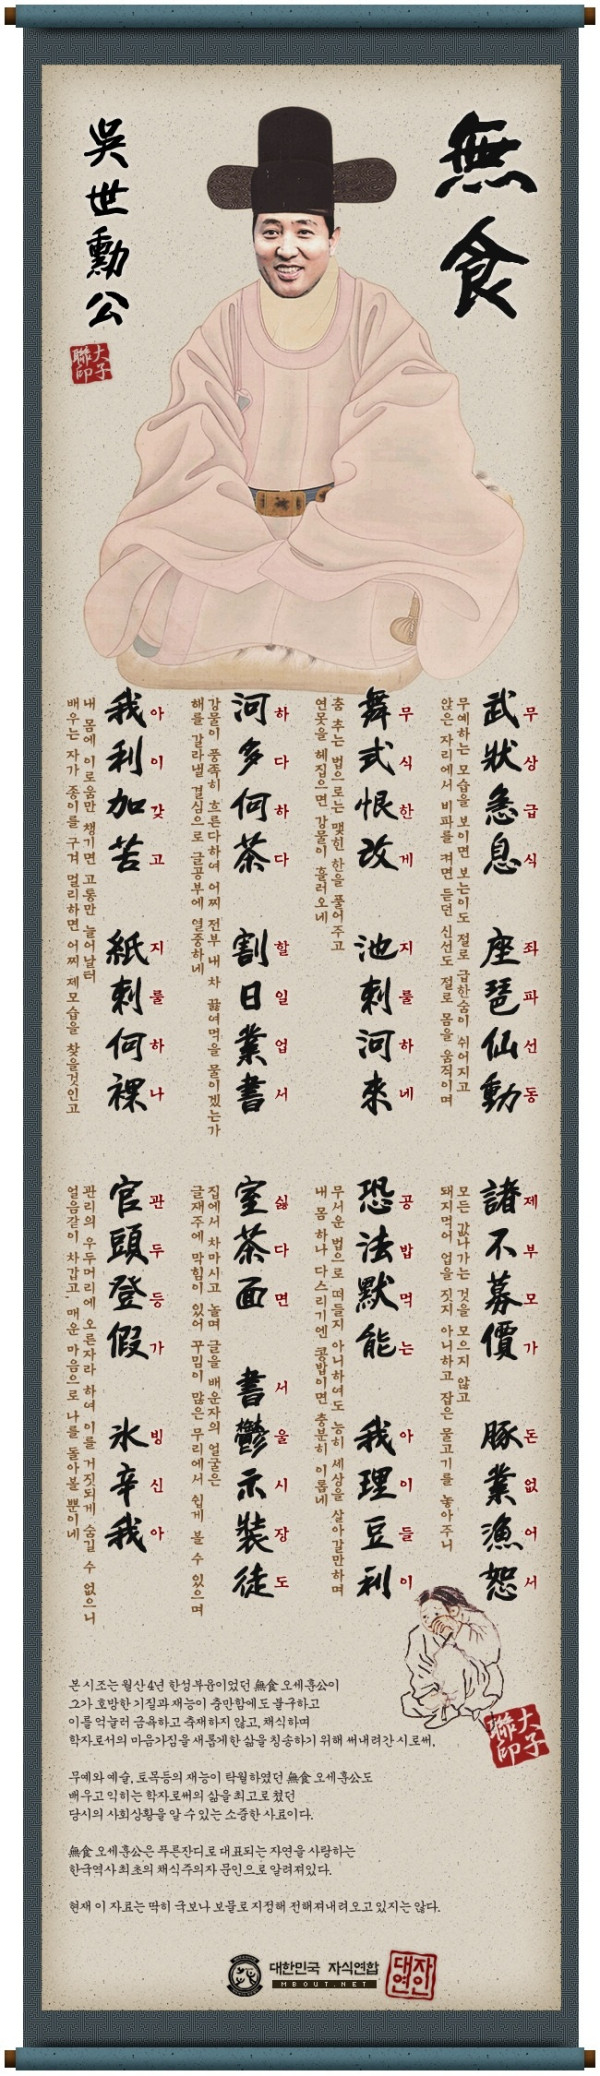 無食
吳世勳公
大子
聯印
武狀急息 座琶仙動
무상급식 좌파선동
무예하는 모습을 보이면 보는이도 절로 급한숨이 쉬어지고
앉은 자리에서 비파를 켜면 듣던 신선도 절로 몸을 움직이며
舞式恨改 池刺河來
무식한게 지롤하네
춤 추는 법으로는 맺힌 한을 풀어주고
연못을 헤집으면 강물이 흘러오네
河多何茶 割日業書
하다하다 할일업서
강물이 풍족히 흐른다하여 어찌 전부 내 차 끓여먹을 물이겠는가
해를 갈라낼 결심으로 글공부에 열중하네
我利加苦 紙刺何裸
아이갖고 지롤하나
내 몸에 이로움만 챙기면 고통만 늘어날터
배우는 자가 종이를 구겨 멀리하면 어찌 제모습을 찾을것인고
諸不募價 豚業漁恕
제부모가 돈없어서
모든 값나가는 것을 모으지 않고
돼지먹어 업을 짓지 아니하고 잡은 물고기를 놓아주니
恐法默能 我理豆利
공밥먹는 아이들이
무서운 법으로 떠들지 아니하여도 능히 세상을 살아갈만하며
내 몸 하나 다스리기엔 콩밥이면 충분히 이롭네
室茶面 書鬱示裝徒
싫다면 서울시장도
집에서 차마시고 놀며 글을 배운자의 얼굴은
글재주에 막힘이 있어 꾸밈이 많은 무리에서 쉽게 볼 수 있으며
官頭登假 氷辛我
관두등가 빙신아
관리의 우두머리에 오른자라 하여 이를 거짓되게 숨길 수 없으니
얼음같이 차갑고 매운 마음으로 나를 돌아볼 뿐이네
大子
聯印
본 시조는 월산 4년 한성부윤이었던 無食 오세훈公이
그가 호방한 기질과 재능이 충만함에도 불구하고
이를 억눌러 금욕하고 축재하지 않고, 채식하며
학자로서의 마음가짐을 새롭게한 삶을 칭송하기 위해 써내려간 시로써,
무예와 예술, 토목등의 재능이 탁월하였던 無食 오세훈公도
배우고 익히는 학자로써의 삶을 최고로 쳤던
당시의 사회상황을 알 수 있는 소중한 사료이다.
無食 오세훈公은 푸른잔디로 대표되는 자연을 사랑하는
한국역사 최초의 채식주의자 문인으로 알려져있다.
현재 이 자료는 딱히 국보나 보물로 지정해 전해져내려오고 있지는 않다.
대한민국 자식연합
MBOUT.NET
대자
연인